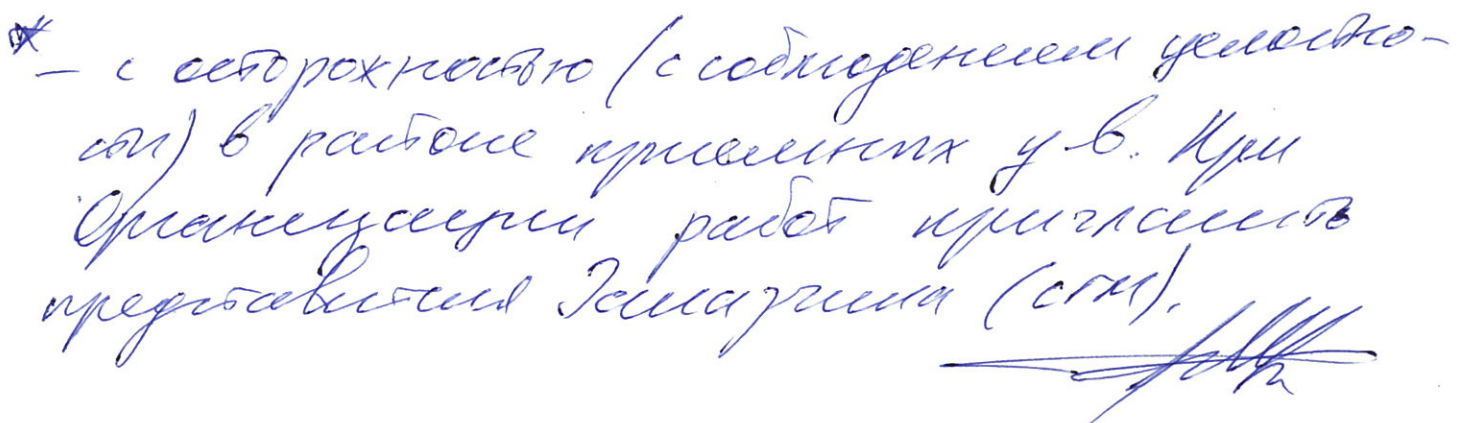 * – с осторожностью (с соблюдением целостно-
сти) в районе приемных у-в. При
Организации работ пригласить
представителя Заказчика (сти).